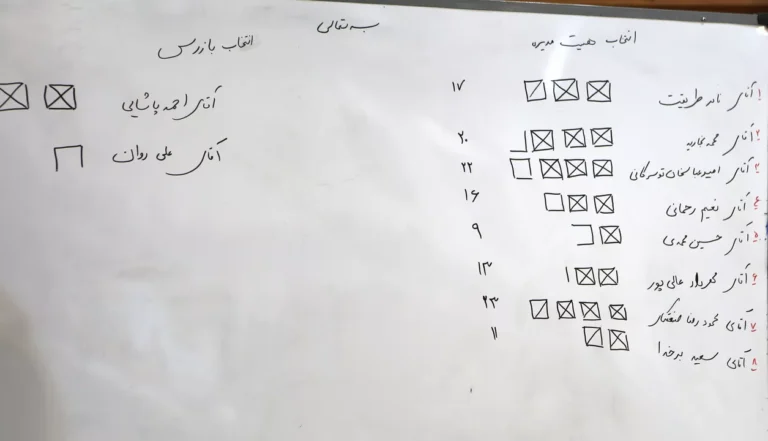 بسمه تعالی
انتخاب هیئت مدیره
۱ آقای نادر طریقت ۱۷
۲ آقای محمد ۲۰
۳ آقای امیرعباسخان تویسرکانی ۲۲
۴ آقای نعیم رحمانی ۱۶
۵ آقای حسین محمدی ۹
۶ آقای مهرداد عالی پور ۱۳
۷ آقای محمود رضا ۲۳
۸ آقای سعید برخدا ۱۱
انتخاب بازرس
آقای احمد پاشایی
آقای علی روان